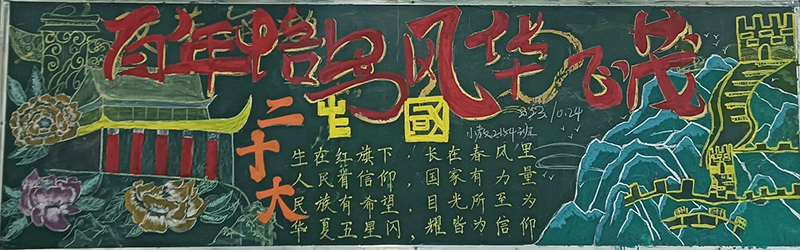 百年恰是风华正茂
二十大
国
小教2154班
生在红旗下，长在春风里
人民有信仰，国家有力量
民族有希望，目光所至为
华夏五星闪，耀皆为信仰